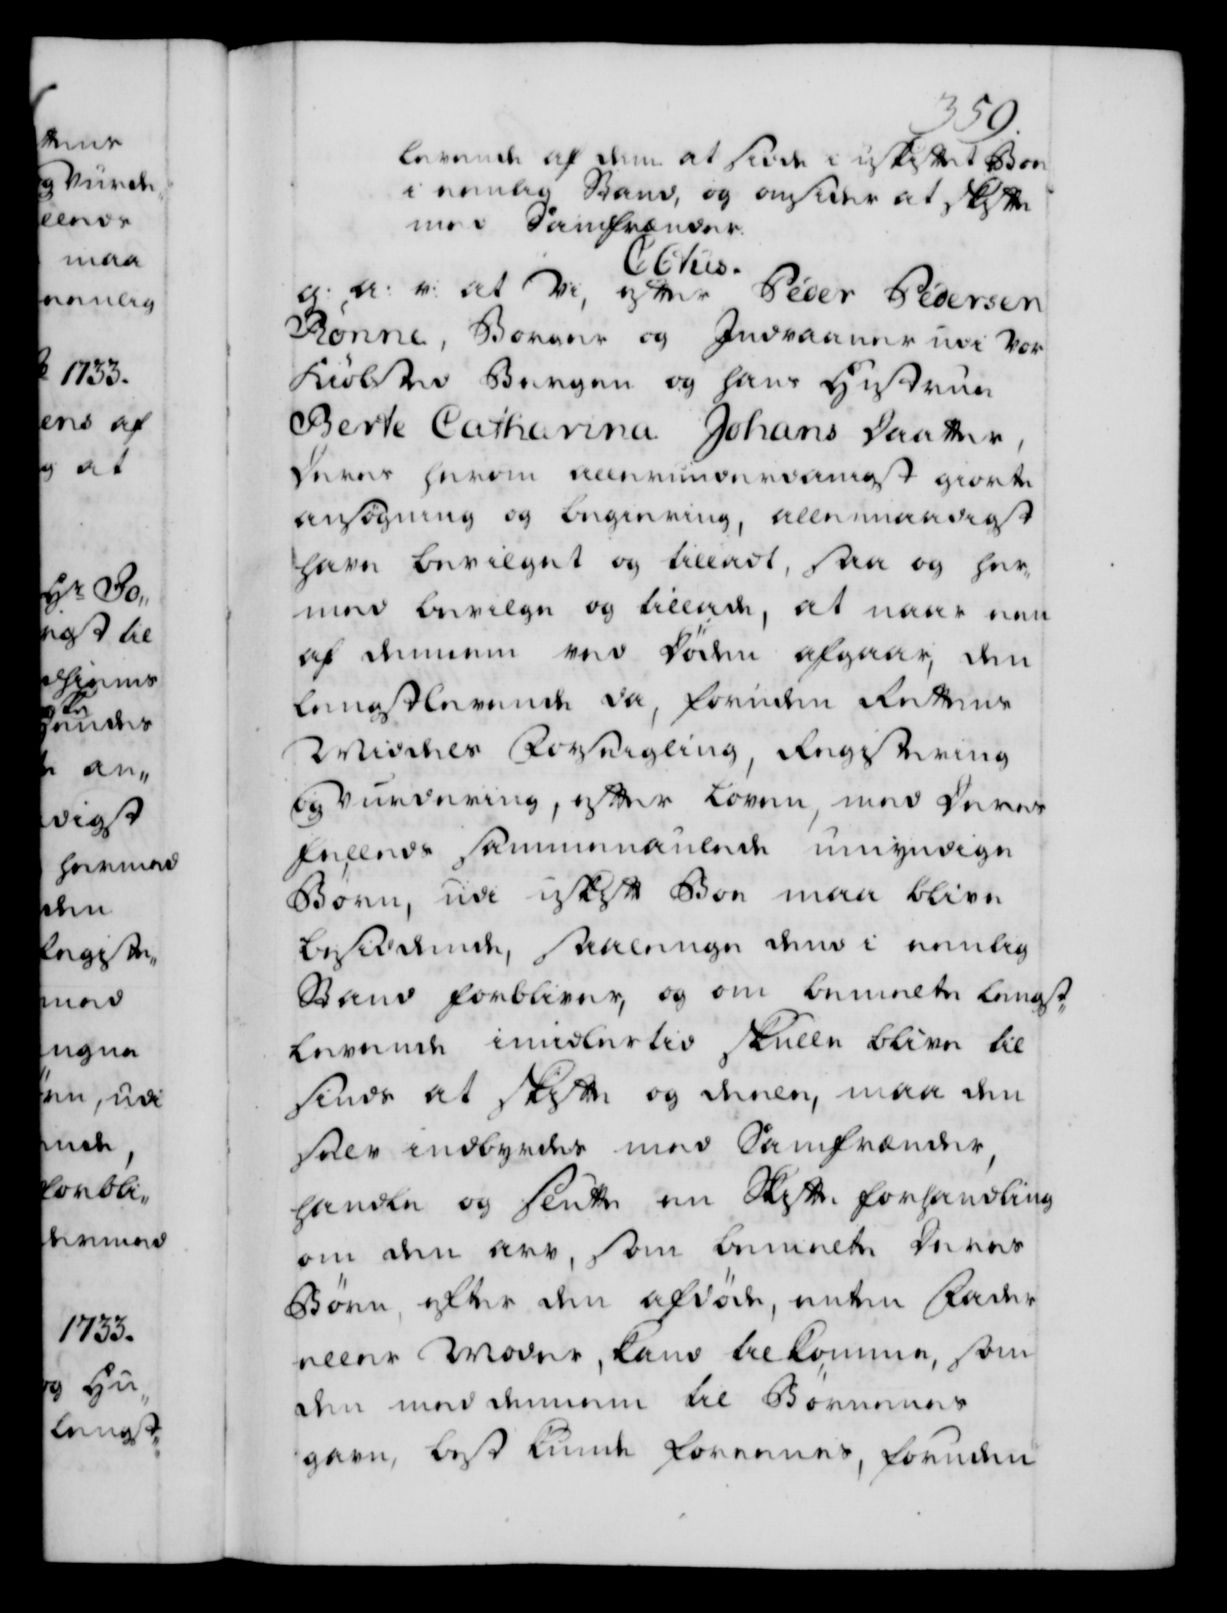 359.
levende af dem at sidde i uskiftet Boe
i eenlig Stand, og omsider at skifte
med Samfrænder.
C6tus.
g: a: v: at Vi, efter Peder Pedersen
Rønne, Borger og Indvaaner udi vor
Kiøbsted Bergen og hans Hustrue
Berte Catharina Johans Daatter,
Deres herom allerunderdanigst giorte
ansøgning og begiering, allernaadigst
have bevilget og tilladt, saa og her„
med bevilge og tillade, at naar een
af dennem ved Døden afgaar, den
længstlevende da, foruden Rettens
Middels Forseigling, Registering
og Vurdering, efter Loven, med Deres
fælleds sammenaulede umyndige
Børn, udi uskift Boe maa blive
besiddende, saalenge dend i eenlig
Stand forbliver, og om bemelte længst„
levende imidlertid skulle blive til
sinds at skifte og deele, maa den
selv indbyrdes med Samfrænder,
handle og slutte en Skifte forhandling
om den arv, som bemelte Deres
Børn, efter den afdøde, enten Fader
eller Moder, kand tilkomme, som
den med dennem til Børnenes
gavn, best kunde foreenes, foruden
og Vurde„
maa
eenlig
1733.
ens af
og at
Hr Jo„
an„
hermed
den
Registe„
med
udi
forbli„
hermed
1733.
og Hu„
længst„